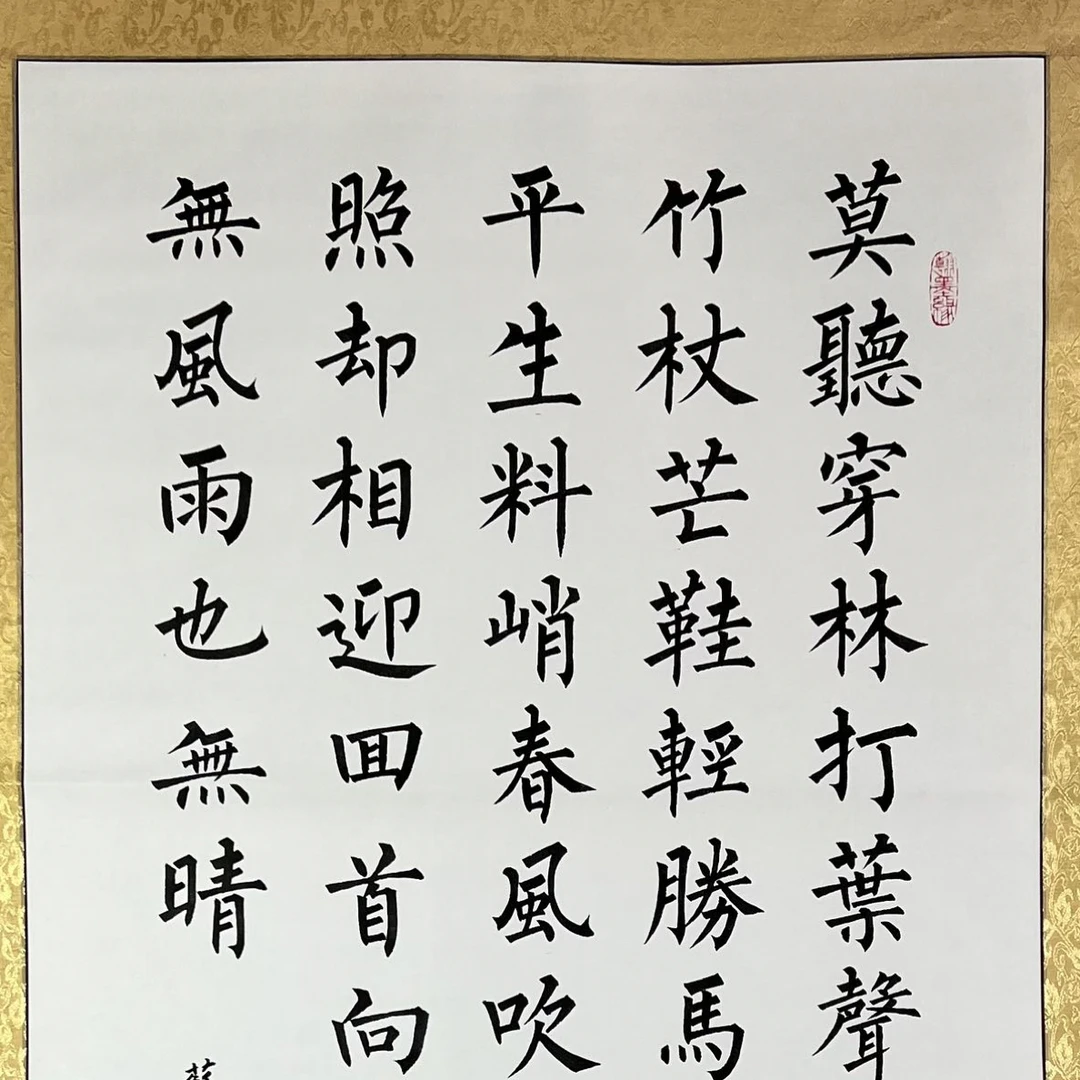 翰墨緣
莫聽穿林打葉聲
竹杖芒鞋輕勝馬
平生料峭春風吹
照却相迎囬首向
無風雨也無晴